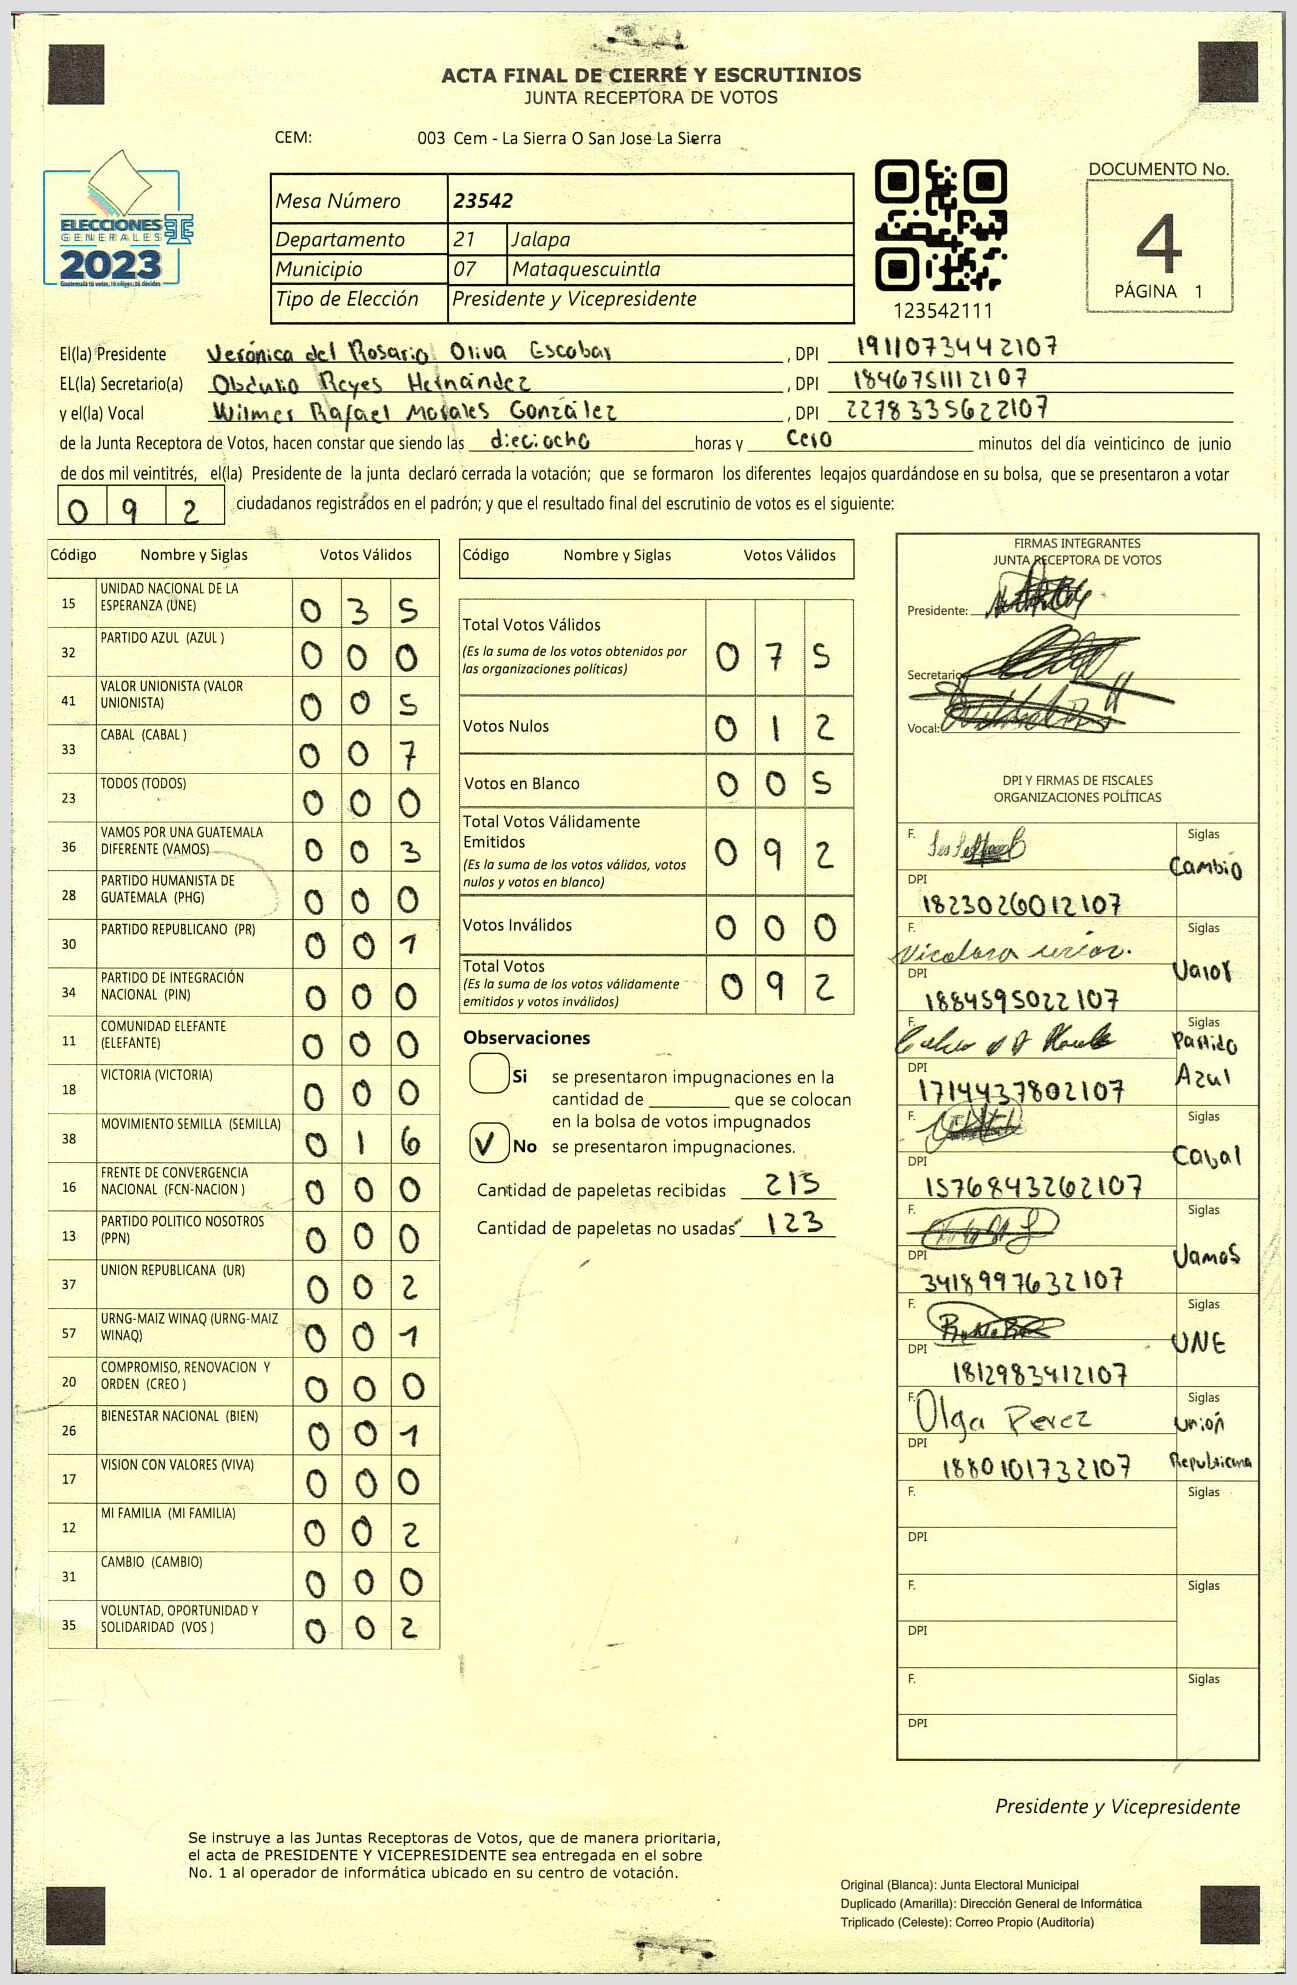 ACTA FINAL DE CIERRE Y ESCRUTINIOS
JUNTA RECEPTORA DE VOTOS
CEM: 003 Cem - La Sierra O San Jose La Sierra
ELECCIONES
GENERALES
2023
Guatemala tú votas, tú eliges, tú decides
Mesa Número 23542
Departamento 21 Jalapa
Municipio 07 Mataquescuintla
Tipo de Elección Presidente y Vicepresidente
123542111
DOCUMENTO No.
4
PÁGINA 1
El(la) Presidente Verónica del Rosario Oliva Escobar , DPI 1911073442107
EL(la) Secretario(a) Obdulio Reyes Hernández , DPI 1846751112107
y el(la) Vocal Wilmer Rafael Morales González , DPI 2278335622107
de la Junta Receptora de Votos, hacen constar que siendo las dieciocho horas y cero minutos del día veinticinco de junio
de dos mil veintitrés, el(la) Presidente de la junta declaró cerrada la votación; que se formaron los diferentes legajos guardándose en su bolsa, que se presentaron a votar
092 ciudadanos registrados en el padrón; y que el resultado final del escrutinio de votos es el siguiente:
Código Nombre y Siglas Votos Válidos
15 UNIDAD NACIONAL DE LA ESPERANZA (UNE) 035
32 PARTIDO AZUL (AZUL ) 000
41 VALOR UNIONISTA (VALOR UNIONISTA) 005
33 CABAL (CABAL ) 007
23 TODOS (TODOS) 000
36 VAMOS POR UNA GUATEMALA DIFERENTE (VAMOS) 003
28 PARTIDO HUMANISTA DE GUATEMALA (PHG) 000
30 PARTIDO REPUBLICANO (PR) 001
34 PARTIDO DE INTEGRACIÓN NACIONAL (PIN) 000
11 COMUNIDAD ELEFANTE (ELEFANTE) 000
18 VICTORIA (VICTORIA) 000
38 MOVIMIENTO SEMILLA (SEMILLA) 016
16 FRENTE DE CONVERGENCIA NACIONAL (FCN-NACION ) 000
13 PARTIDO POLITICO NOSOTROS (PPN) 000
37 UNION REPUBLICANA (UR) 002
57 URNG-MAIZ WINAQ (URNG-MAIZ WINAQ) 001
20 COMPROMISO, RENOVACION Y ORDEN (CREO ) 000
26 BIENESTAR NACIONAL (BIEN) 001
17 VISION CON VALORES (VIVA) 000
12 MI FAMILIA (MI FAMILIA) 002
31 CAMBIO (CAMBIO) 000
35 VOLUNTAD, OPORTUNIDAD Y SOLIDARIDAD (VOS ) 002
Código Nombre y Siglas Votos Válidos
Total Votos Válidos 075
(Es la suma de los votos obtenidos por las organizaciones políticas)
Votos Nulos 012
Votos en Blanco 005
Total Votos Válidamente Emitidos 092
(Es la suma de los votos válidos, votos nulos y votos en blanco)
Votos Inválidos 000
Total Votos 092
(Es la suma de los votos válidamente emitidos y votos inválidos)
Observaciones
Si se presentaron impugnaciones en la
cantidad de ________ que se colocan
en la bolsa de votos impugnados
V No se presentaron impugnaciones.
Cantidad de papeletas recibidas 215
Cantidad de papeletas no usadas 123
FIRMAS INTEGRANTES
JUNTA RECEPTORA DE VOTOS
Presidente:
Secretario
Vocal:
DPI Y FIRMAS DE FISCALES
ORGANIZACIONES POLÍTICAS
F. Siglas Cambio
DPI 1823026012107
F. Siglas Valor
DPI 1884595022107
F. Siglas Partido Azul
DPI 1714437802107
F. Siglas Cabal
DPI 1576843262107
F. Siglas Vamos
DPI 3418997632107
F. Siglas UNE
DPI 1812983412107
F. Olga Perez Siglas Unión Republicana
DPI 1880101732107
F. Siglas
DPI
F. Siglas
DPI
F. Siglas
DPI
Presidente y Vicepresidente
Se instruye a las Juntas Receptoras de Votos, que de manera prioritaria,
el acta de PRESIDENTE Y VICEPRESIDENTE sea entregada en el sobre
No. 1 al operador de informática ubicado en su centro de votación.
Original (Blanca): Junta Electoral Municipal
Duplicado (Amarilla): Dirección General de Informática
Triplicado (Celeste): Correo Propio (Auditoría)